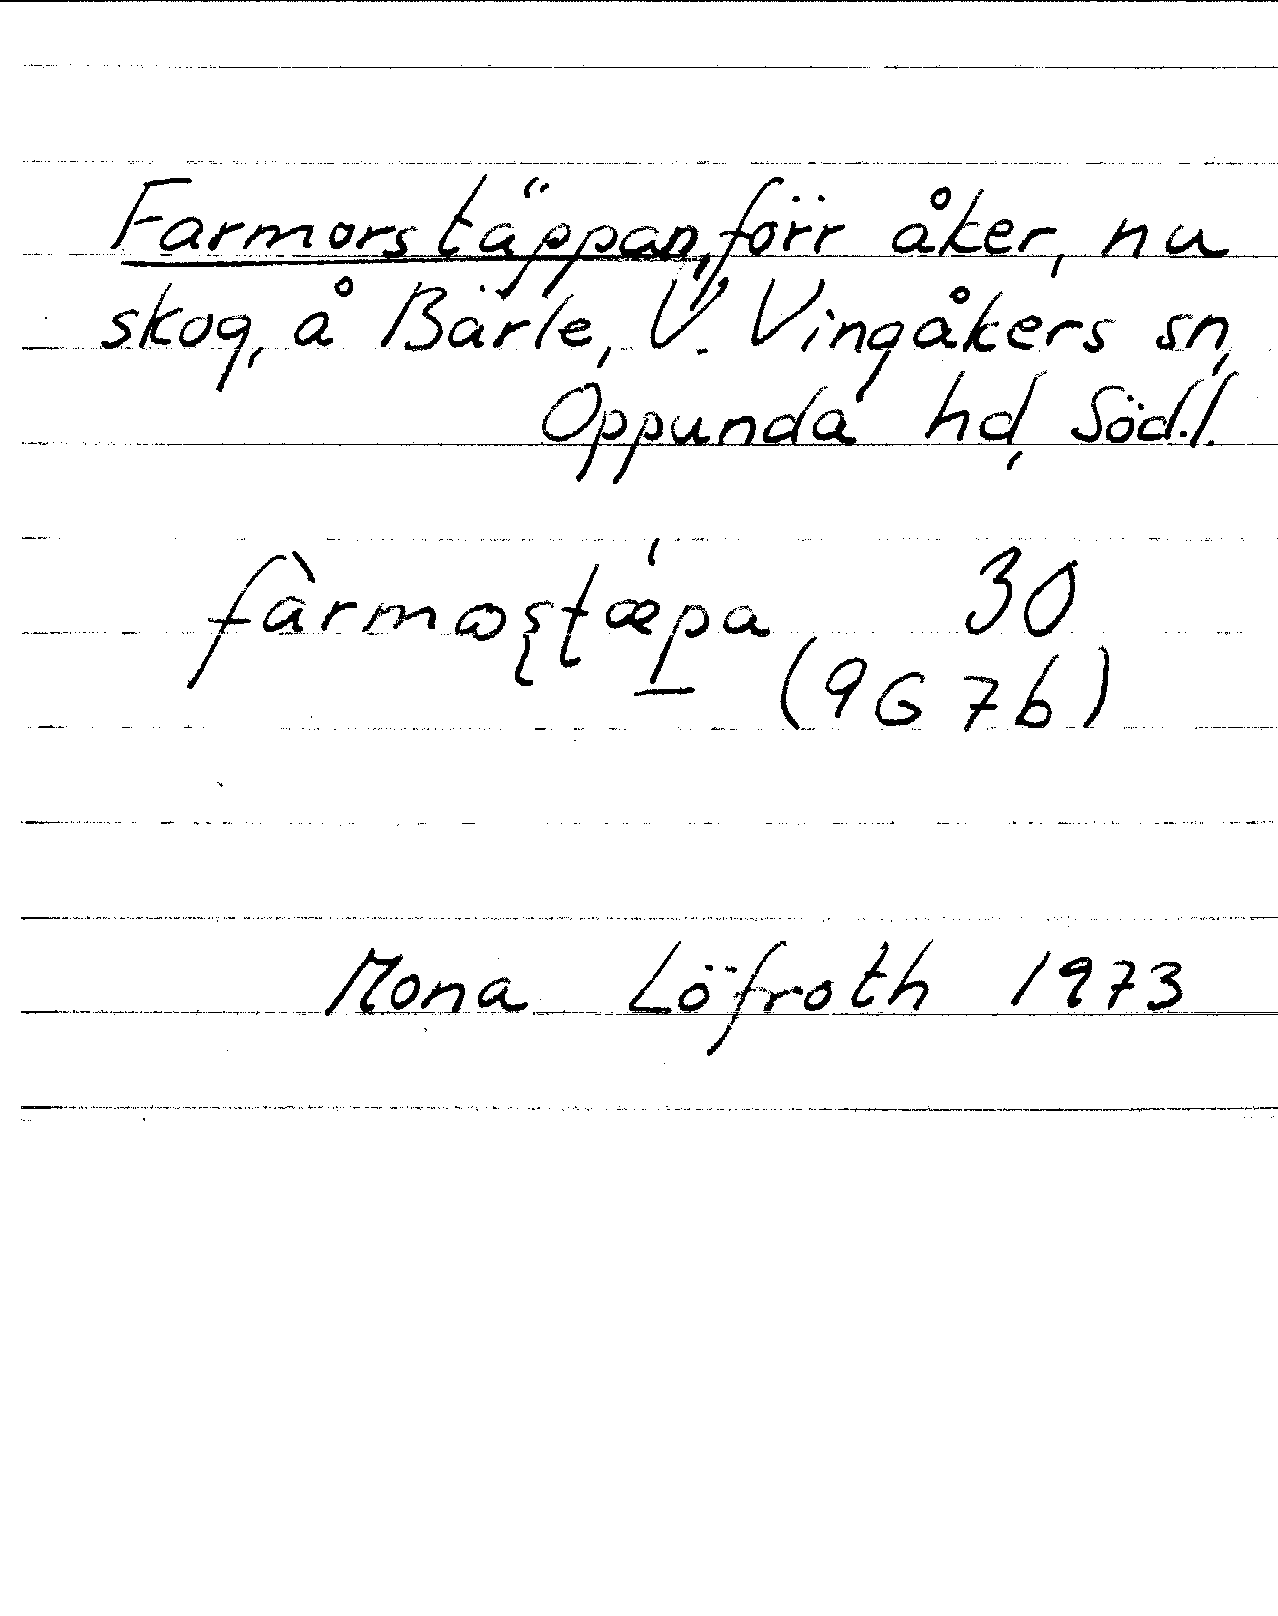 Farmorstäppan, förr åker, nu
skog, å Bärle, V. Vingåkers sn,
Oppunda hd, Söd.l.
fàrmoʂʈǽpa 30
(9G 7b)
Mona Löfroth 1973